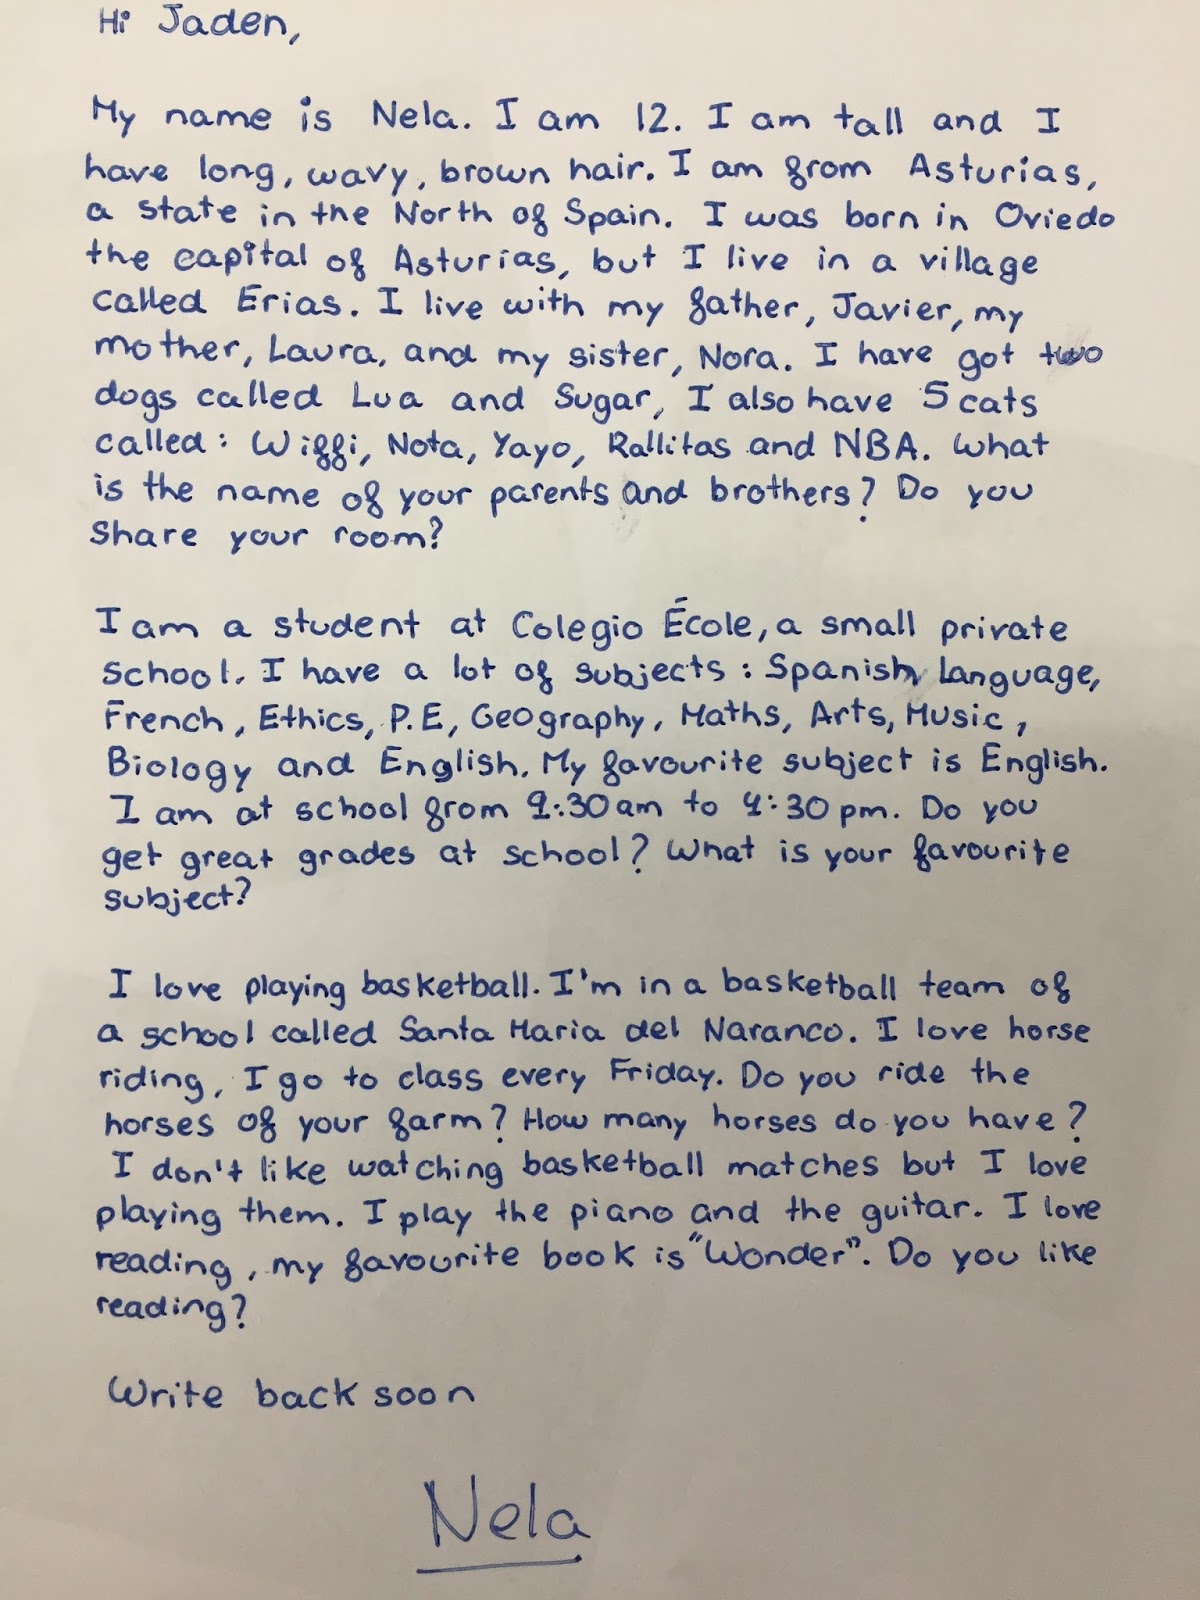 Hi Jaden,
My name is Nela. I am 12. I am tall and I
have long, wavy, brown hair. I am from Asturias,
a state in the North of Spain. I was born in Oviedo
the capital of Asturias, but I live in a village
called Erias. I live with my father, Javier, my
mother, Laura, and my sister, Nora. I have got two
dogs called Lua and Sugar, I also have 5 cats
called: Wiffi, Nota, Yayo, Rallitas and NBA. What
is the name of your parents and brothers? Do you
share your room?
I am a student at Colegio École, a small private
school. I have a lot of subjects: Spanish Language,
French, Ethics, P.E, Geography, Maths, Arts, Music,
Biology and English. My favourite subject is English.
I am at school from 9:30 am to 4:30 pm. Do you
get great grades at school? What is your favourite
subject?
I love playing basketball. I'm in a basketball team of
a school called Santa Maria del Naranco. I love horse
riding, I go to class every Friday. Do you ride the
horses of your farm? How many horses do you have?
I don't like watching basketball matches but I love
playing them. I play the piano and the guitar. I love
reading, my favourite book is "Wonder". Do you like
reading?
Write back soon
Nela